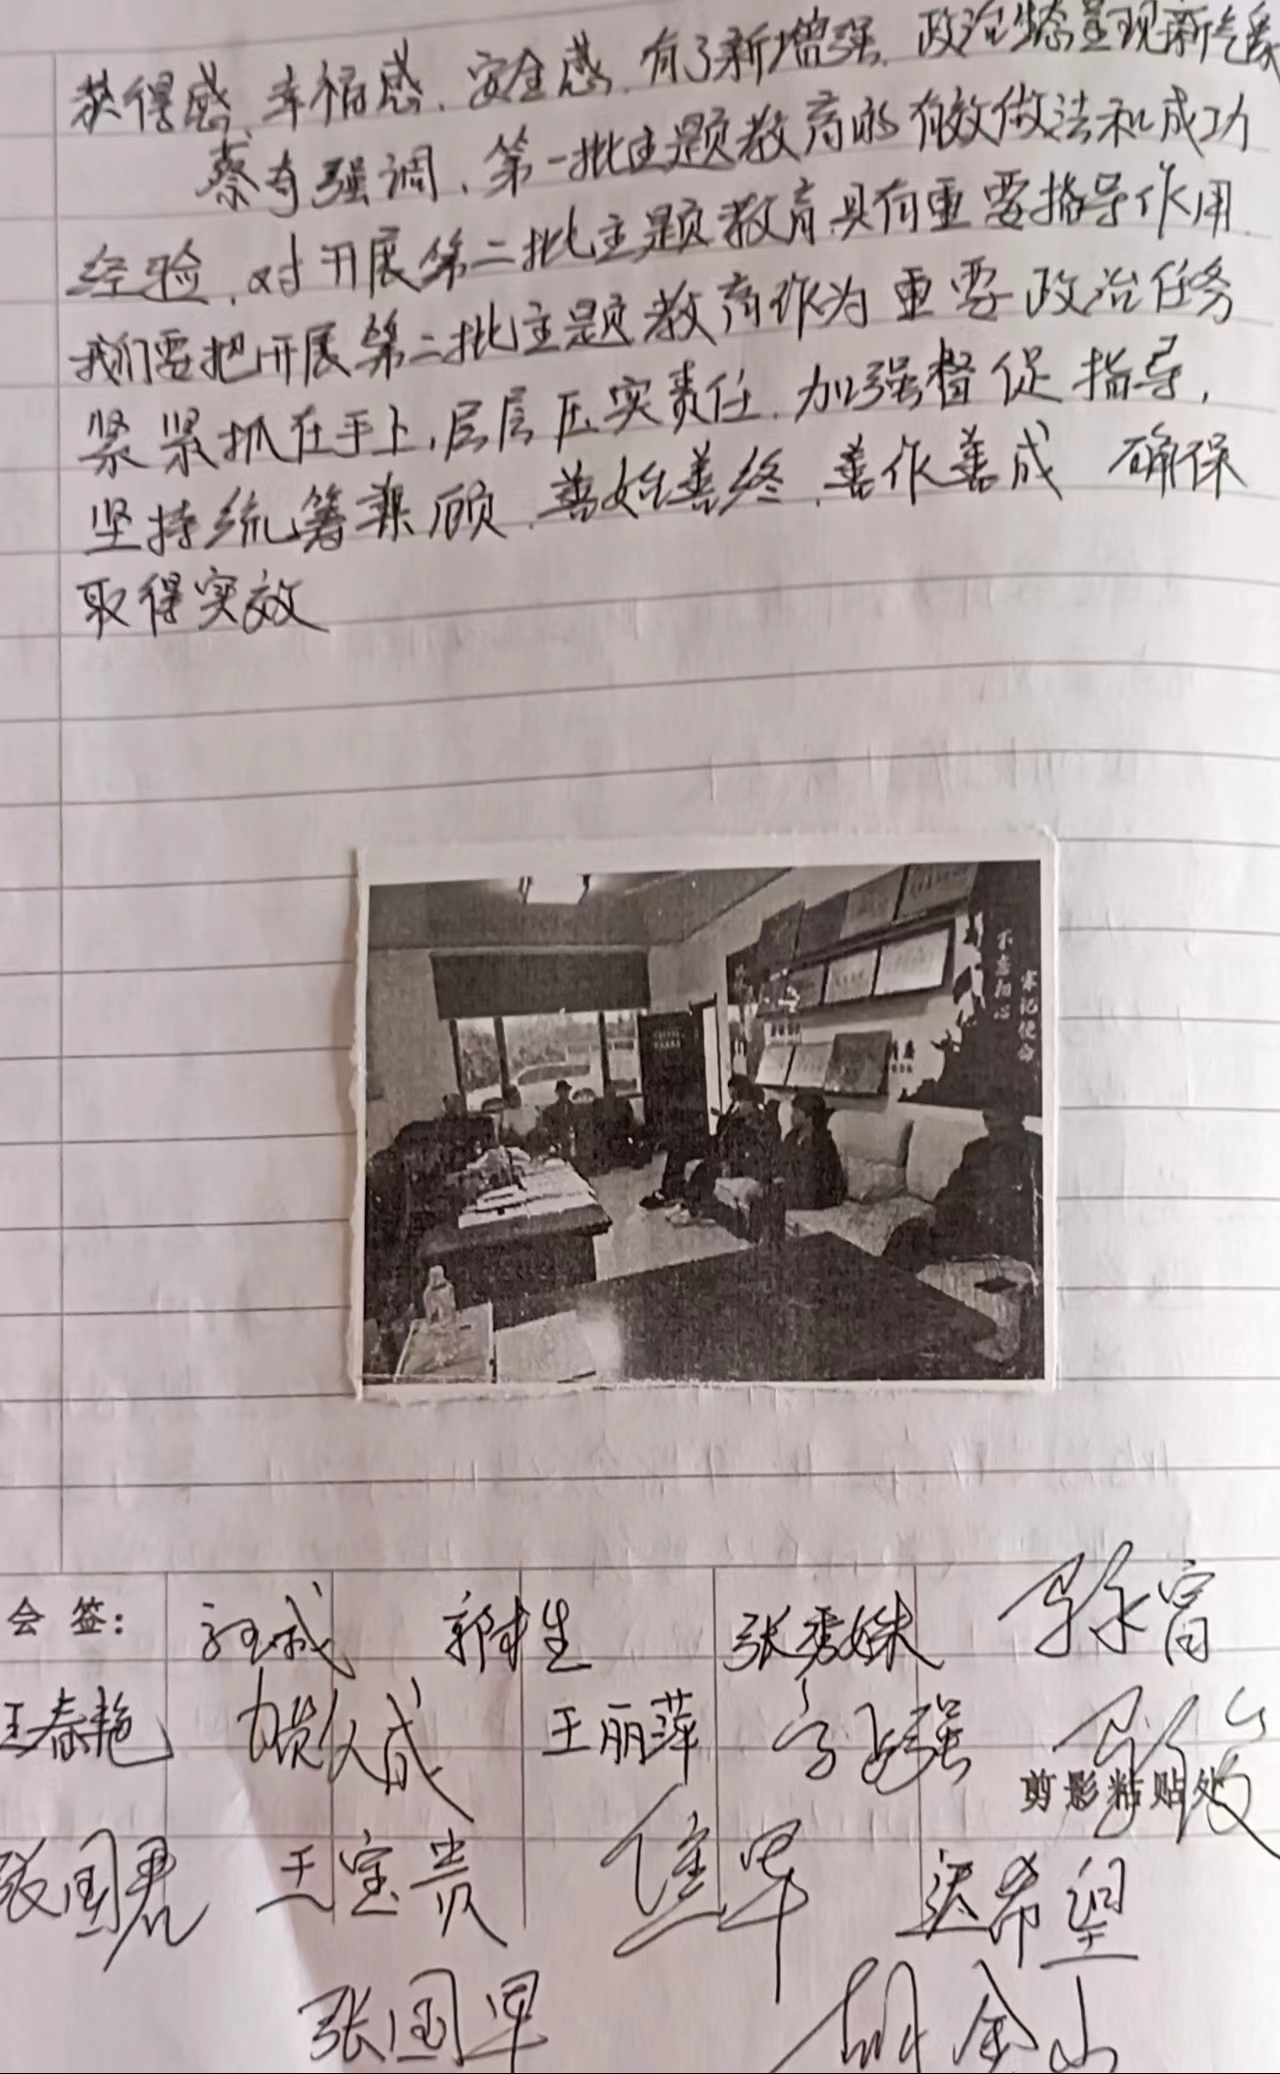 获得感、幸福感、安全感,有了新增强,政治生态呈现新气象
蔡奇强调,第一批主题教育的有效做法和成功
经验,对开展第二批主题教育具有重要指导作用.
我们要把开展第二批主题教育作为重要政治任务
紧紧抓在手上,层层压实责任,加强督促指导,
坚持统筹兼顾,善始善终,善作善成 确保
取得实效
不忘初心
牢记使命
会签:
郭 生 张秀妹
王春艳 成 王丽萍 强
剪影粘贴处
张国君 王宝贵 希望
张国军 胡金山